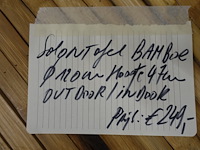 Salontafel BAMBOE
Ø 110cm Hoogte 47cm
OUTDOOR / INDOOR
Prijs: € 249,-